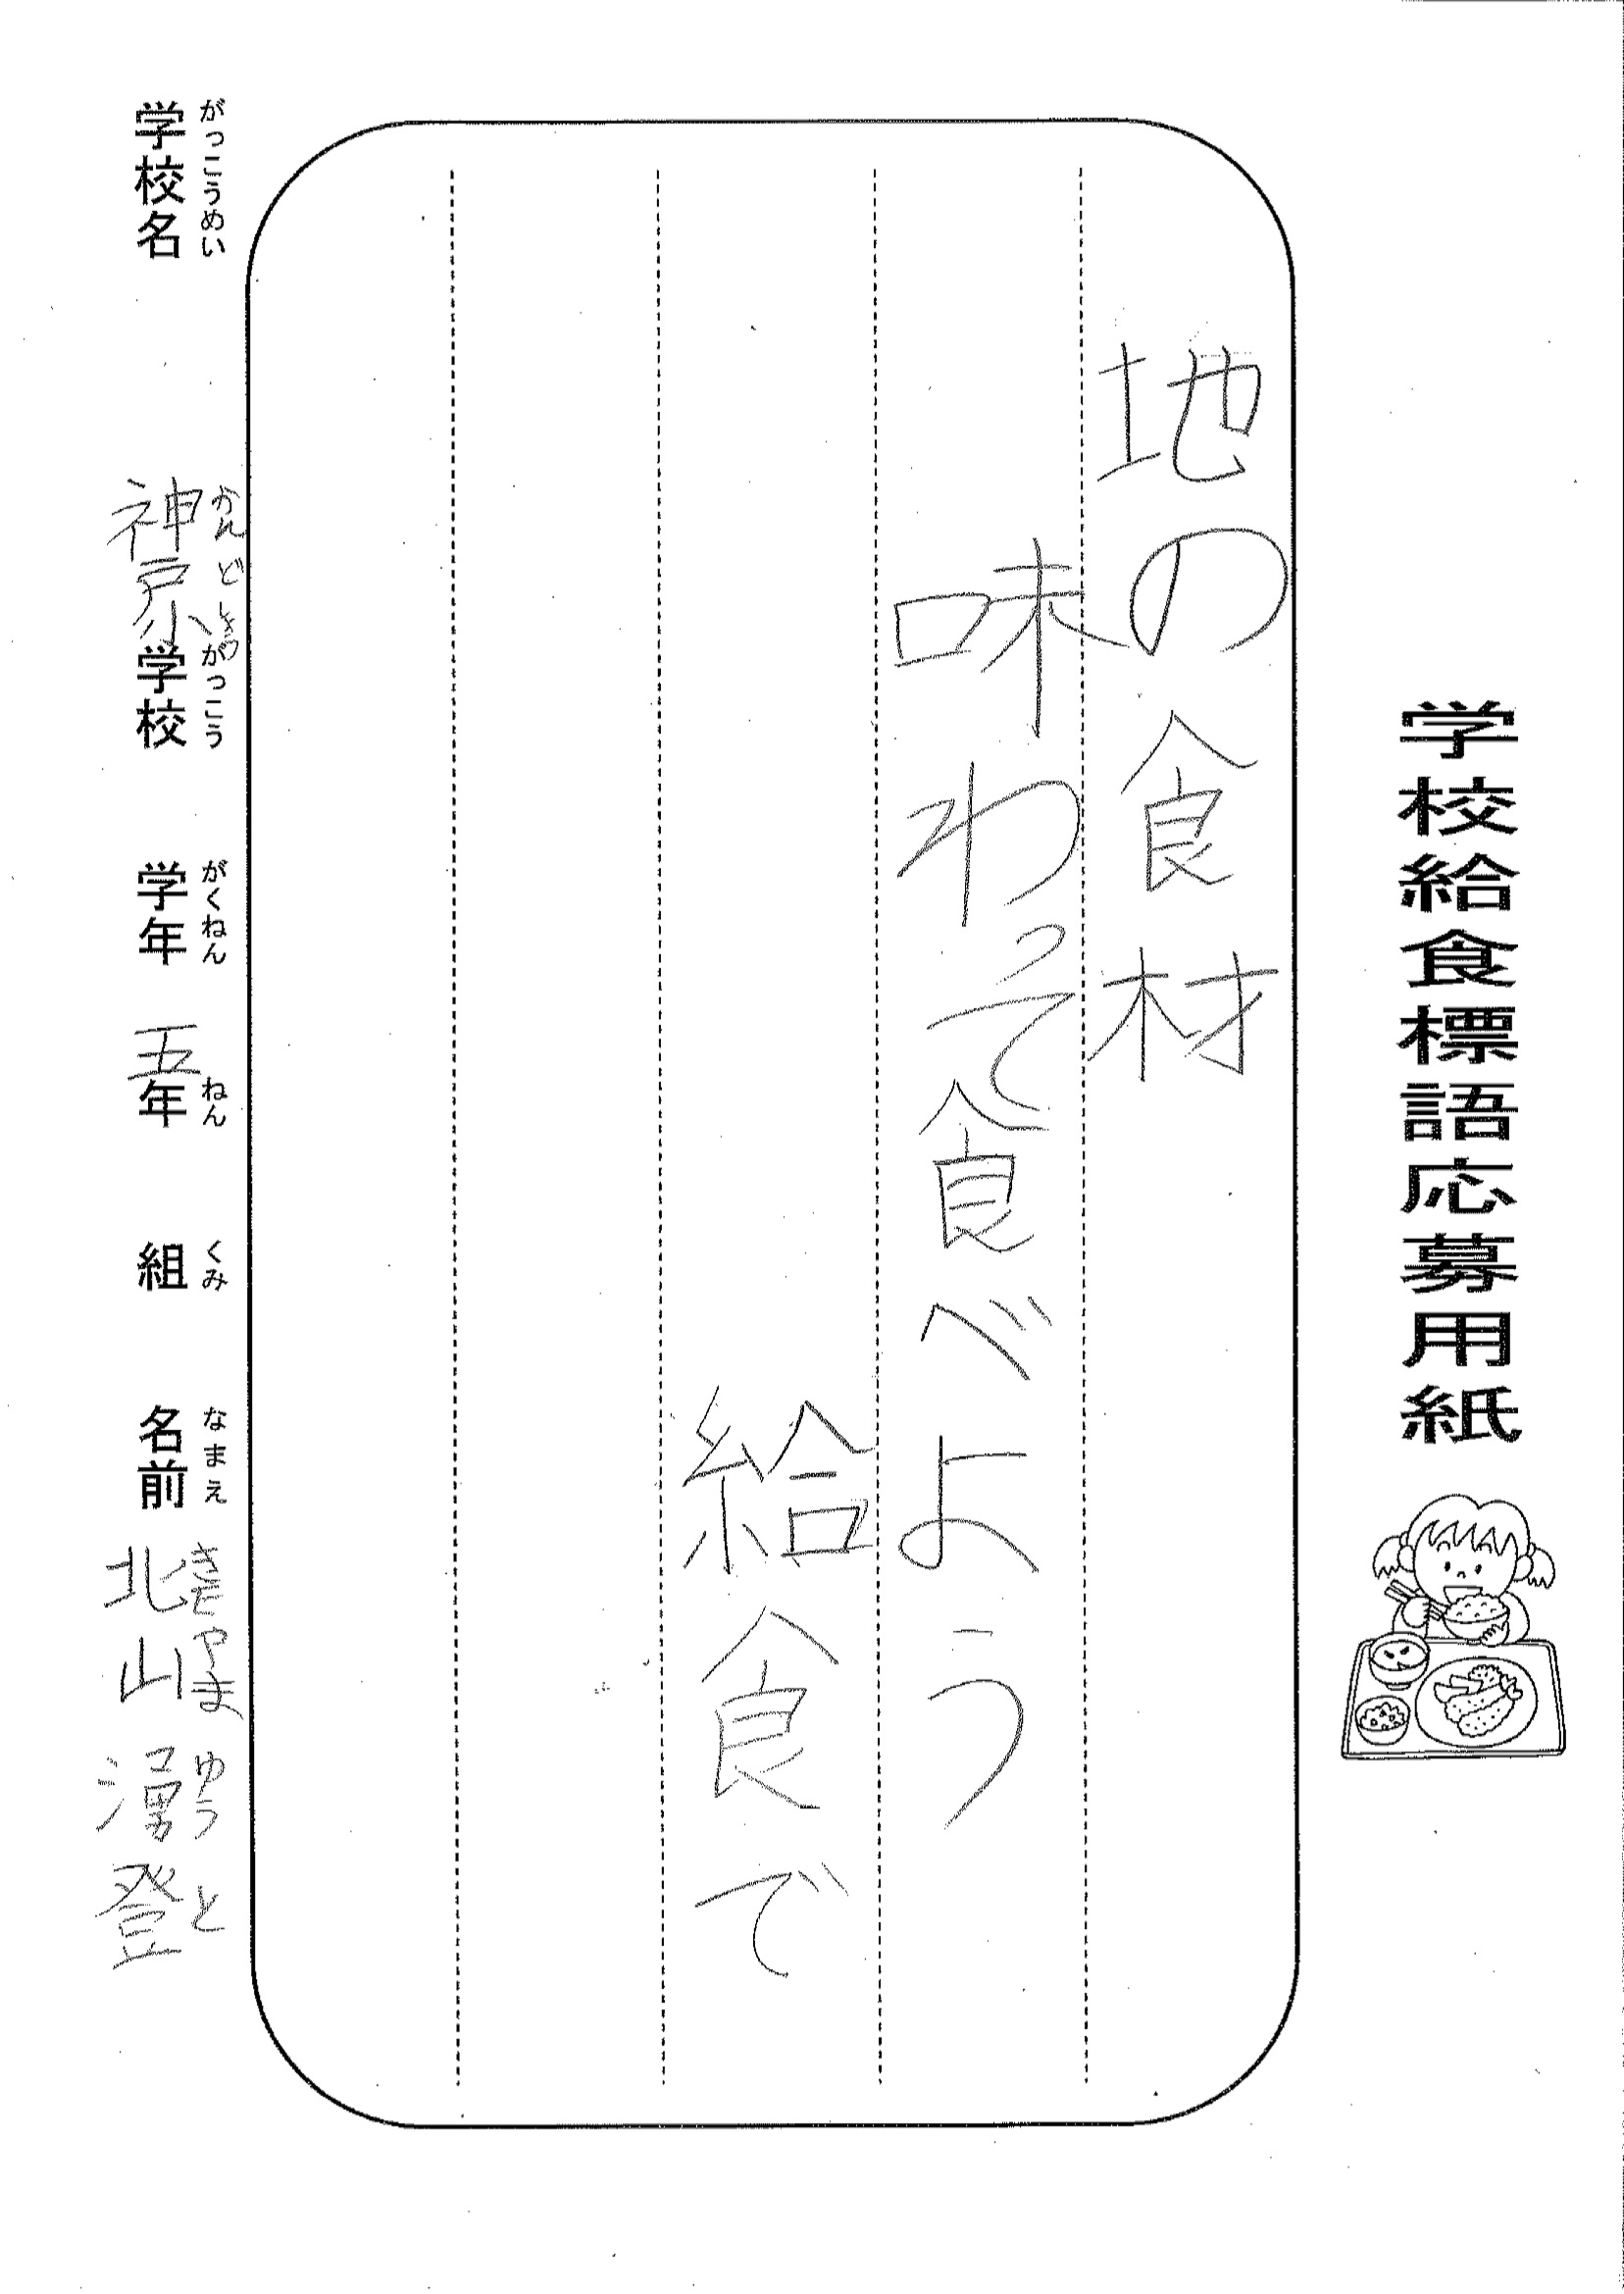 学校給食標語応募用紙
地の食材
味わって食べよう
給食で
がっこうめい かんどしょうがっこう がくねん ねん くみ なまえ きたやま ゆうと
学校名 神戸小学校 学年 五年 組 名前 北山 湧登